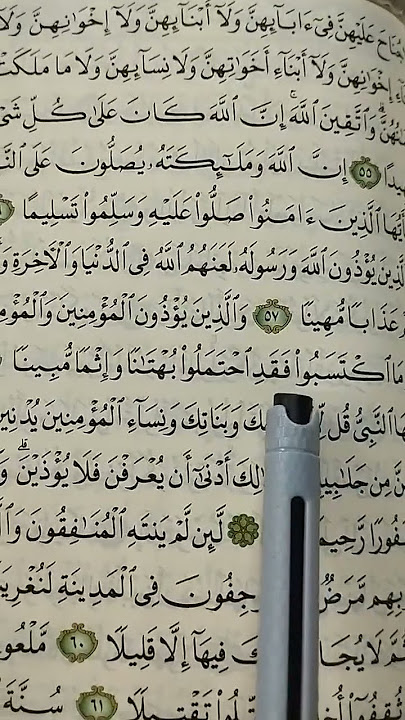 جُنَاحَ عَلَيْهِنَّ فِىٓ ءَابَآئِهِنَّ وَلَآ أَبْنَآئِهِنَّ وَلَآ إِخْوَٰنِهِنَّ وَلَآ
إِخْوَٰنِهِنَّ وَلَآ أَبْنَآءِ أَخَوَٰتِهِنَّ وَلَا نِسَآئِهِنَّ وَلَا مَا مَلَكَتْ
وَٱتَّقِينَ ٱللَّهَۚ إِنَّ ٱللَّهَ كَانَ عَلَىٰ كُلِّ
٥٥ إِنَّ ٱللَّهَ وَمَلَٰٓئِكَتَهُۥ يُصَلُّونَ عَلَى
ٱلَّذِينَ ءَامَنُوا۟ صَلُّوا۟ عَلَيْهِ وَسَلِّمُوا۟ تَسْلِيمًا
يُؤْذُونَ ٱللَّهَ وَرَسُولَهُۥ لَعَنَهُمُ ٱللَّهُ فِى ٱلدُّنْيَا وَٱلْءَاخِرَةِ
عَذَابًا مُّهِينًا ٥٧ وَٱلَّذِينَ يُؤْذُونَ ٱلْمُؤْمِنِينَ
مَا ٱكْتَسَبُوا۟ فَقَدِ ٱحْتَمَلُوا۟ بُهْتَٰنًا وَإِثْمًا مُّبِينًا
ٱلنَّبِىُّ قُل وَبَنَاتِكَ وَنِسَآءِ ٱلْمُؤْمِنِينَ يُدْنِينَ
مِن أَدْنَىٰٓ أَن يُعْرَفْنَ فَلَا يُؤْذَيْنَۗ
لَّئِن لَّمْ يَنتَهِ ٱلْمُنَٰفِقُونَ
مَّرَضٌ فِى ٱلْمَدِينَةِ
لَا فِيهَآ إِلَّا قَلِيلًا ٦٠
تَقْتِيلًا ٦١ سُنَّةَ